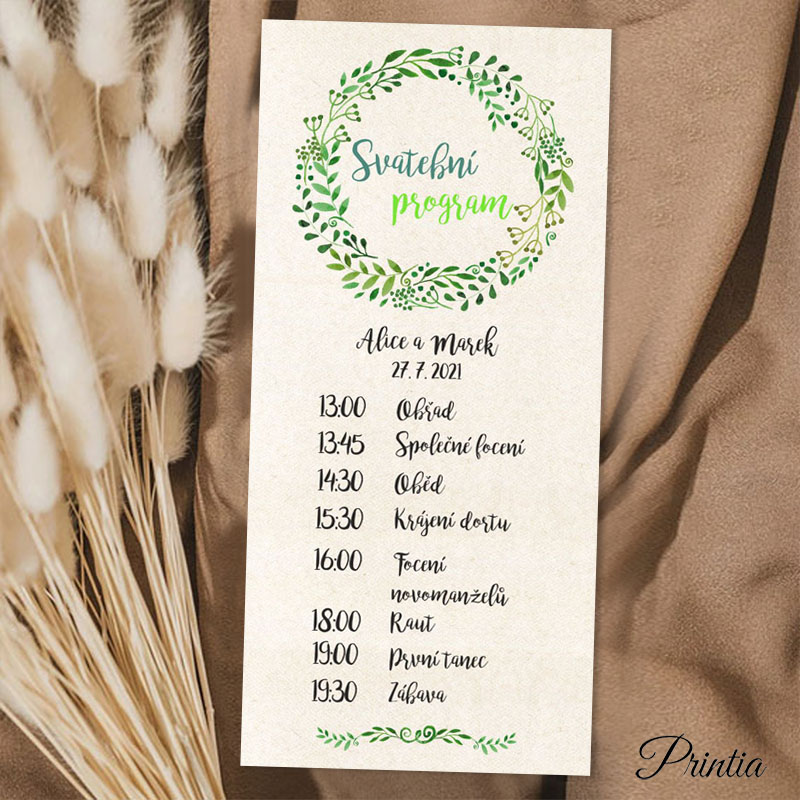 Svatební
program
Alice a Marek
27. 7. 2021
13:00 Obřad
13:45 Společné focení
14:30 Oběd
15:30 Krájení dortu
16:00 Focení
novomanželů
18:00 Raut
19:00 První tanec
19:30 Zábava
Printia